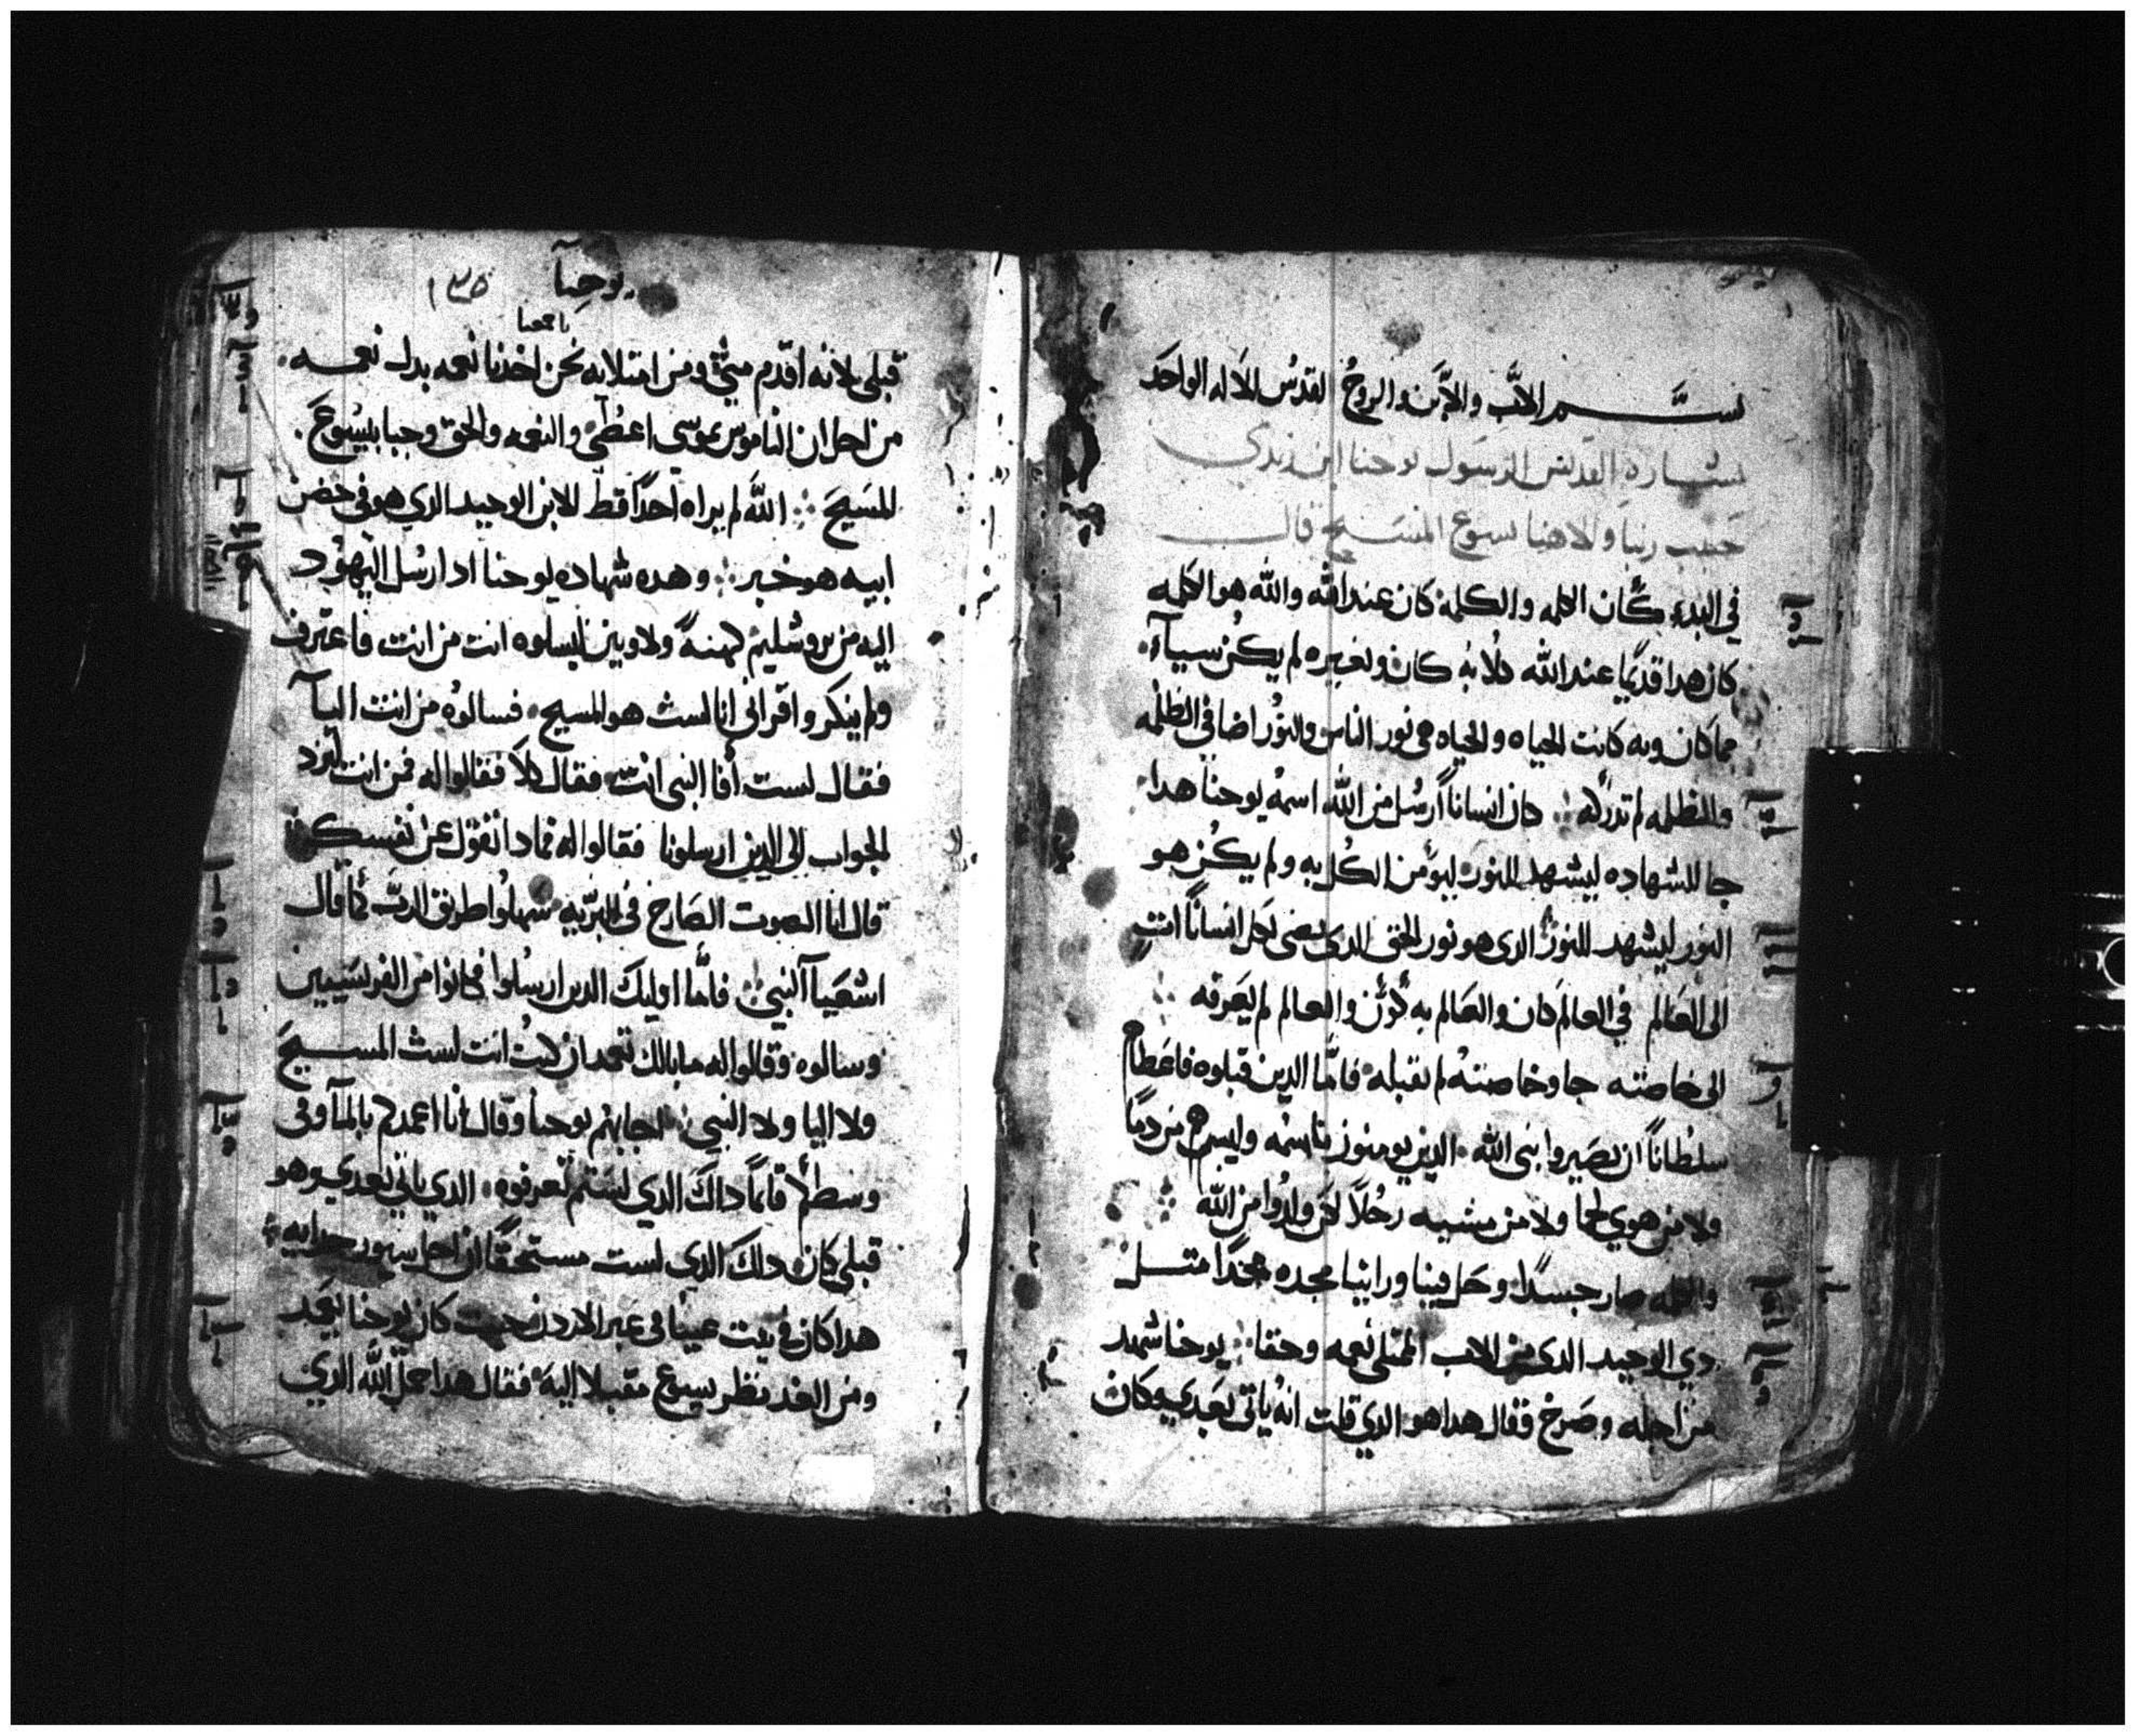 بســـم الاب والابن والروح القدس الاله الواحد
بشارة القديس الرسول يوحنا ابن زبدي
حبيب ربنا والاهنا يسوع المسيح قال
في البدء كان الكلمه والكلمه كان عند الله والله هو الكلمه
كان هدا قديما عند الله كلا به كان وبغيره لم يكن سياء
مما كان وبه كانت الحياه والحياه هي نور الناس والنور اضا في الظلمه
والظلمه لم تدركه كان انسانا ارسل من الله اسمه يوحنا هدا
جا للشهاده ليشهد للنور ليومن الكل به ولم يكن هو
النور ليشهد للنور الدى هو نور الحق الدى يضى لكل انسانا ات
الى العالم في العالم كان والعالم به كون والعالم لم يعرفه
الى خاصته جا وخاصته لم تقبله فاما الدين قبلوه فاعطاهم
سلطانا ان يصيروا بنى الله الدين يومنوز باسمه وليسهم من دما
ولا من هوي لحما ولا من مشيه رجلا لكن ولدوا من الله
والكلمه صار جسدا وحل فينا وراينا مجده مجدا متل
دي الوحيد الدى من الاب الممتلى نعمه وحقا يوحنا شهد
من اجله وصرخ فقال هدا هو الدي قلت انه ياتى بعدي وكان
يوحنا ١٣٥
باجمعنا
قبلى لانه اقدم منى ومن امتلايه نحن اخدنا نعمه بدل نعمه
من اجل ان الناموس بموسى اعطى والنعمه والحق وجبا بيسوع
المسيح الله لم يراه احدا قط للابن الوحيد الدي هو فى حضن
ابيه هو خبر وهده شهاده يوحنا اد ارسل اليهود
اليه من يروشليم كهنة ولاويين ليسلوه انت من انت فاعترف
ولم ينكر واقر انى انا لست هو المسيح فسالوه من انت اليا
فقال لست أفا النبى انت فقال كلا فقالوا له فمن انت لنرد
الجواب الى الدين ارسلونا فقالوا له فمادا تقول عن نفسك
قال انا الصوت الصارخ فى البريه سهلوا طريق الرب كما قال
اشعيا النبي فاما اوليك الدين ارسلوا فكانوا من الفريسيين
وسالوه وقالوا له ما بالك تعمد ان كنت انت لست المسيح
ولا اليا ولا النبي اجابهم يوحنا وقال انا اعمدكم بالما وفى
وسطكم قايما داك الدي لستم تعرفوه الدي ياتي بعدي وهو
قبلى كان دلك الدى لست مستحقا ان احل سيور حدايه
هدا كان فى بيت عينا فى عبر الاردن حيث كان يوحنا يعمد
ومن الغد نظر يسوع مقبلا اليه فقال هدا حمل الله الدي